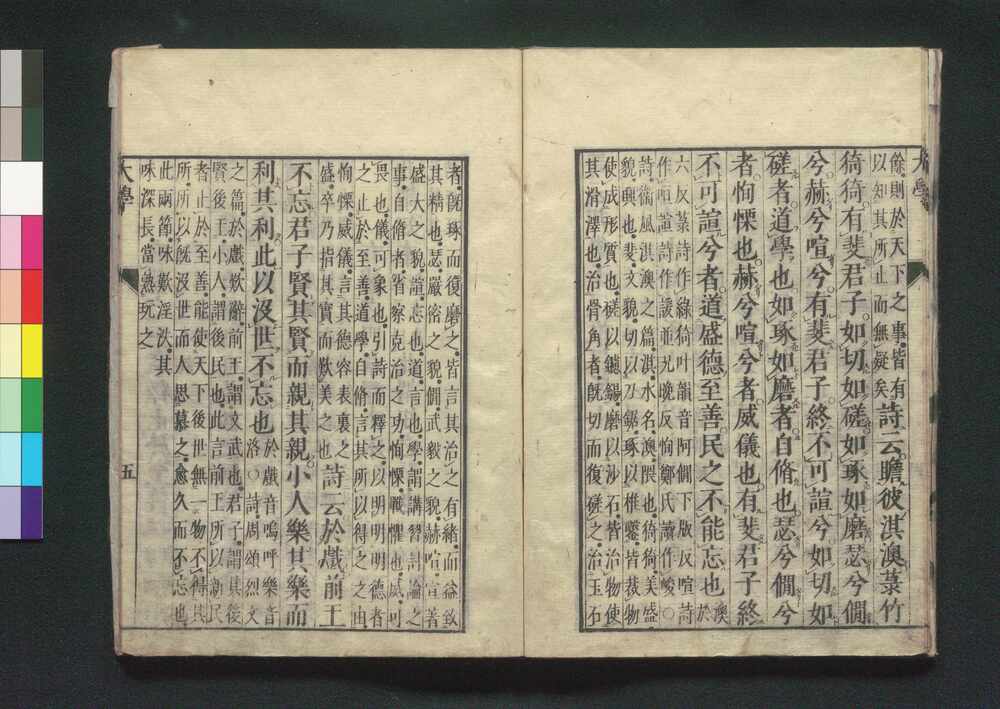 大學
餘則於天下之事皆有
以知其所止而無疑矣
詩云瞻彼淇澳菉竹
猗猗有斐君子如切如磋如琢如磨瑟兮僩
兮赫兮喧兮有斐君子終不可諠兮如切如
磋者道學也如琢如磨者自脩也瑟兮僩兮
者恂慄也赫兮喧兮者威儀也有斐君子終
不可諠兮者道盛德至善民之不能忘也
澳
於
六反菉詩作綠猗叶韻音阿僩下版反喧詩
作咺諠詩作諼並况晚反恂鄭氏讀作峻○
詩衛風淇澳之篇淇水名澳隈也猗猗美盛
貌興也斐文貌切以刀鋸琢以椎鑿皆裁物
使成形質也磋以鑢鐋磨以沙石皆治物使
其滑澤也治骨角者旣切而復磋之治玉石
者旣琢而復磨之皆言其治之有緒而益致
其精也瑟嚴密之貌僩武毅之貌赫喧宣著
盛大之貌諠忘也道言也學謂講習討論之
事自脩者省察克治之功恂慄戰懼也威可
畏也儀可象也引詩而釋之以明明明德者
之止於至善道學自脩言其所以得之之由
恂慄威儀言其德容表裏之
盛卒乃指其實而歎美之也
詩云於戲前王
不忘君子賢其賢而親其親小人樂其樂而
利其利此以沒世不忘也
於戲音嗚呼樂音
洛○詩周頌烈文
之篇於戲歎辭前王謂文武也君子謂其後
賢後王小人謂後民也此言前王所以新民
者止於至善能使天下後世無一物不得其
所所以旣沒世而人思慕之愈久而不忘也
此兩節咏歎淫泆其
味深長當熟玩之
大學
五